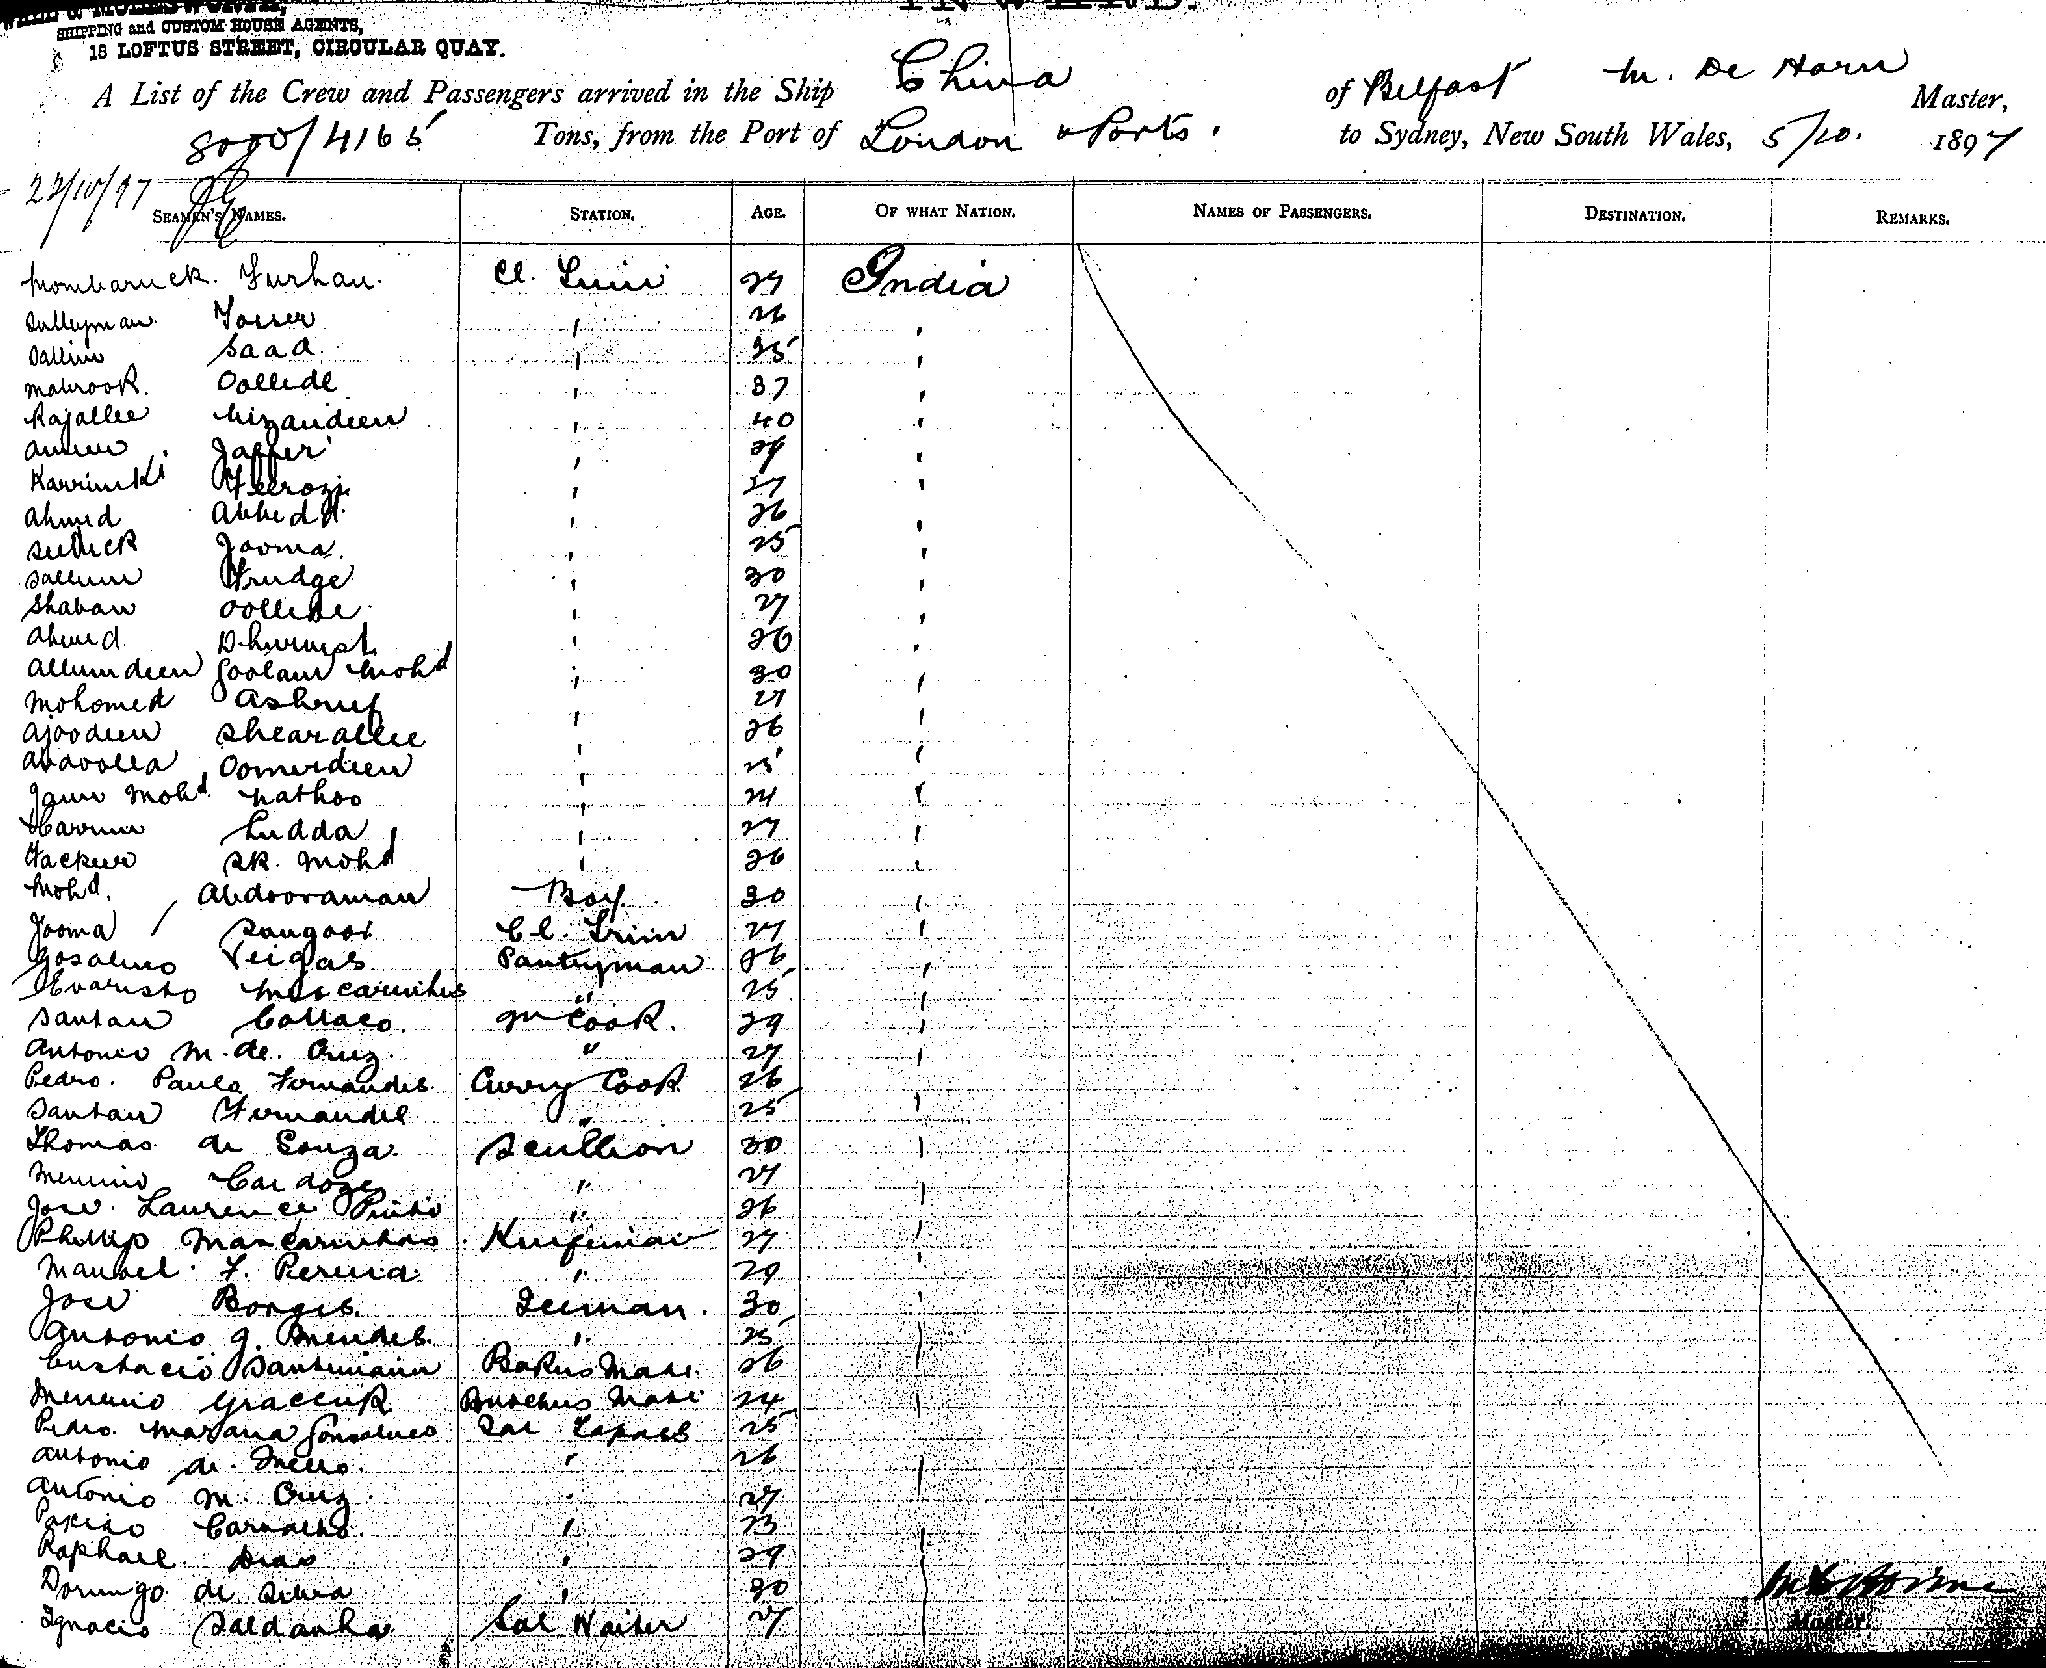 SHIPPING and CUSTOM HOUSE AGENTS,
18 LOFTUS STREET, CIRCULAR QUAY.
INWARD.
A List of the Crew and Passengers arrived in the Ship China of Belfast M. De Horn Master,
8000/4165 Tons, from the Port of London & Ports. to Sydney, New South Wales, 5/10. 1897
22/10/97
SEAMEN'S NAMES. STATION. AGE. OF WHAT NATION. NAMES OF PASSENGERS. DESTINATION. REMARKS.
Mombaruck. Furhan. Cl. Trim 27 India
Sulleyman 26 '
Sallim Saad ' 35 '
Mabrook. Oollede ' 37 '
Rajallee Nizamdeen ' 40 '
Jaffer '
Feerozi ' 27 '
Ahmed ' 26 '
Jooma. ' 25 '
Sallum Frudge ' 30 '
Shaban Oollede ' 27 '
Ahmed ' 26 '
Allumdeen Goolam Mohd ' 30 '
Mohomed Ashruf ' 27 '
Ajoodeen Shearallee ' 26 '
Abdoolla Oomerdeen ' 25 '
Jan Mohd Nathoo ' 24 '
Karrim Ludda ' 27 '
Fackeer Sk. Mohd ' 26 '
Mohd. Abdooraman Boy 30 '
Jooma Sangoor Cl. Trim 27 '
Veigas Pantryman 26 '
Evaristo Mascarinhas " 25 '
Santan Collaco. M Cook. 29 '
Antonio M. de. Cruz. " 27 '
Pedro. Paulo Fernandes Curry Cook 26 '
Santan Fernandes " 25 '
Thomas de Souza. Scullion 30 '
Menino Cardoze " 27 '
Jose. Laurence Pinto " 26 '
Phillip Mascarinhas Knifeman 27 '
Manoel. F. Pereira " 29 '
Jose Borges. Iceman. 30 '
Antonio. G. Mendes. " 25 '
Santimano Bakers Mate. 26 '
Menino Graceur Butchers Mate 24 '
Pedro. Mariana Gonsalves Sal Topass 25 '
Antonio de. Mello. ' 26 '
Antonio M. Cruz ' 27 '
Carvalho. ' 23 '
Raphael Dias ' 29 '
Domingo de Silva ' 30 '
Ignacio Saldanha Sal Waiter 27 '
Master.